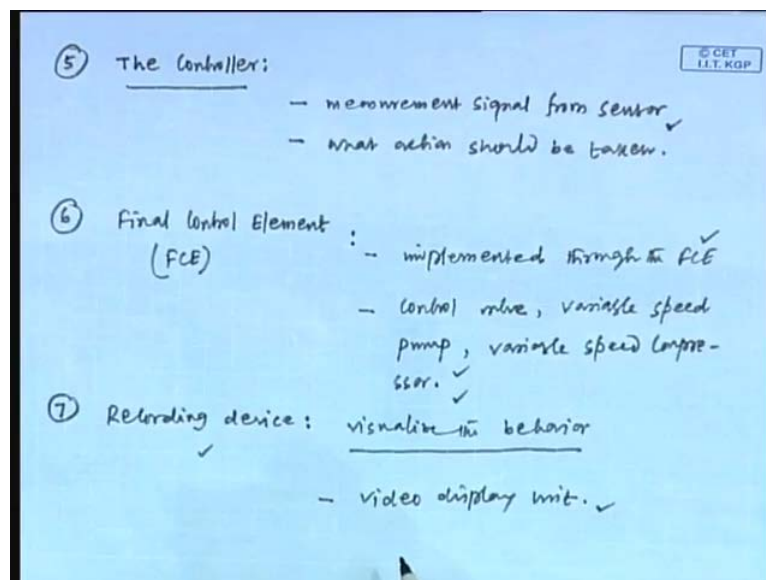 © CET
I.I.T. KGP
⑤ The Controller:
– measurement signal from sensor
– what action should be taken.
⑥ Final Control Element :
(FCE)
– implemented through the FCE
– Control valve, variable speed
pump, variable speed Compre-
ssor.
⑦ Recording device: visualize the behavior
– video display unit.